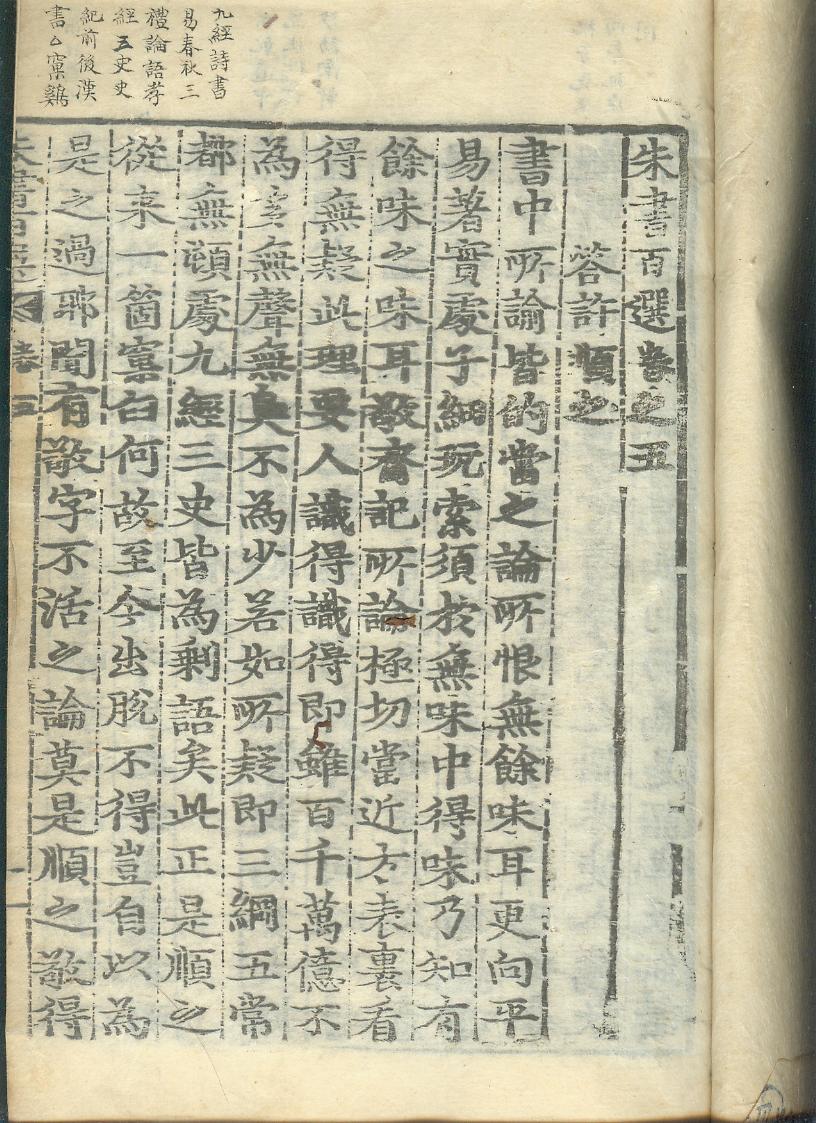 九經詩書
易春秋三
禮論語孝
經三史史
紀前後漢
書△窠鷄
朱書百選卷之五
答許順之
書中所論皆的當之論所恨無餘味耳更向平
易著實處子細玩索須於無味中得味乃知有
餘味之味耳敬齋記所論極切當近方表裏看
得無疑此理要人識得識得即雖百千萬億不
為多無聲無臭不為少若如所疑即三綱五常
都無頓處九經三史皆為剩語矣此正是順之
從來一箇窠臼何故至今出脫不得豈自以為
是之過耶聞有敬字不活之論莫是順之敬得
朱書百選 卷五